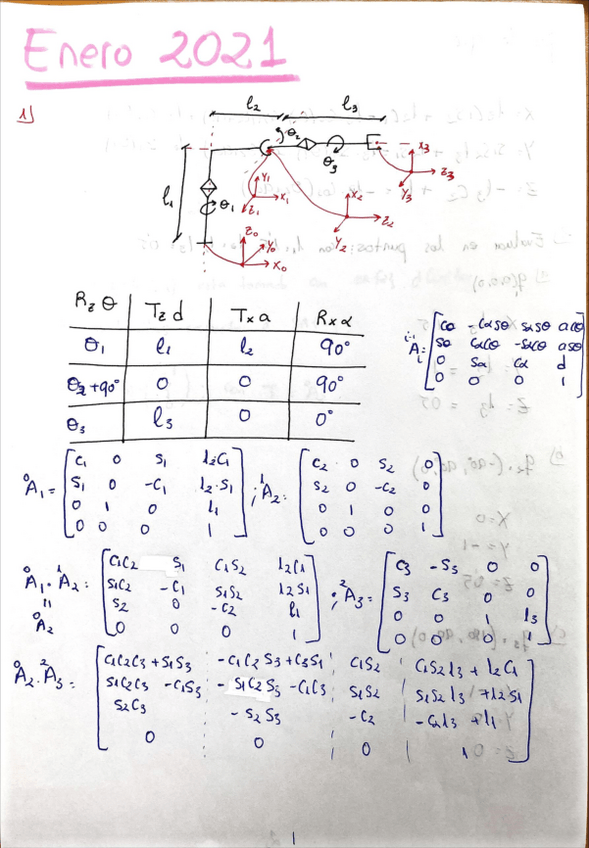 Enero 2021
1)
l2 l3
θ2
θ3
l1
θ1
x3
z3
y3
y1
x1
z1
x2
z2
y2
z0
y0
x0
Rz θ Tz d Tx a Rx α
θ1 l1 l2 90°
θ2+90° 0 0 90°
θ3 l3 0 0°
i-1Ai = [cθ -cαsθ sαsθ acθ
sθ cαcθ -sαcθ asθ
0 sα cα d
0 0 0 1]
0A1 = [c1 0 s1 l2c1
s1 0 -c1 l2·s1
0 1 0 l1
0 0 0 1] ; 1A2: [c2 0 s2 0
s2 0 -c2 0
0 1 0 0
0 0 0 1]
0A1 · 1A2 = [c1c2 s1 c1s2 l2c1
s1c2 -c1 s1s2 l2s1
s2 0 -c2 l1
0 0 0 1] ; 2A3 = [c3 -s3 0 0
s3 c3 0 0
0 0 1 l3
0 0 0 1]
"
0A2
0A2 · 2A3 = [c1c2c3+s1s3 -c1c2s3+c3s1 c1s2 c1s2l3+l2c1
s1c2c3 -c1s3 -s1c2s3 -c1c3 s1s2 s1s2l3 +l2s1
s2c3 -s2s3 -c2 -c2l3 +l1
0 0 0 1]
1